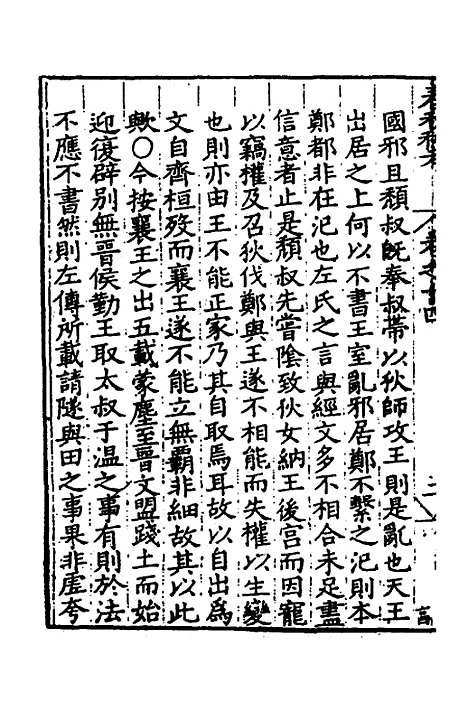 國邪且頹叔旣奉叔帶以狄師攻王則是亂也天王
出居之上何以不書王室亂邪居鄭不繫之氾則本
鄭都非在氾也左氏之言與經文多不相合未足盡
信意者止是頹叔先嘗陰致狄女納王後宮而因寵
以竊權及召狄伐鄭與王遂不相能而失權以生變
也則亦由王不能正家乃其自取焉耳故以自出爲
文自齊桓歿而襄王遂不能立無霸非細故其以此
歟○今按襄王之出五載蒙塵至晉文盟踐土而始
迎復辟别無晉侯勤王取太叔于溫之事有則於法
不應不書然則左傳所載請隧與田之事果非虛夸